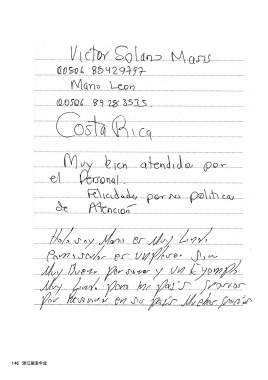 Victor Solano Masis
00506 85429797
Mario Leon
00506 89283535
Costa Rica
Muy bien atendido por
el Personal.
Felicidades por su politica
de Atención
Hola soy Mario es Muy Lindo
es un placer
Muy Buenas personas y un Ejemplo
Muy Lindo para mi país Gracias
por en su país Muchas gracias
146 浙江民营中企